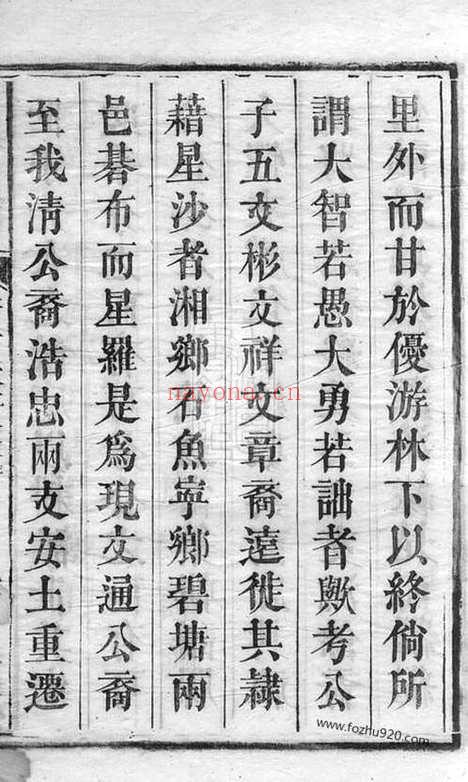 里外而甘於優游林下以終倘所
謂大智若愚大勇若詘者歟考公
子五文彬文祥文章裔遠徙其隸
藉星沙者湘鄉石魚寧鄉碧塘兩
邑碁布而星羅是為現文通公裔
至我淸公裔浩忠兩支安土重遷
nayona.cn
www.fozhu920.com